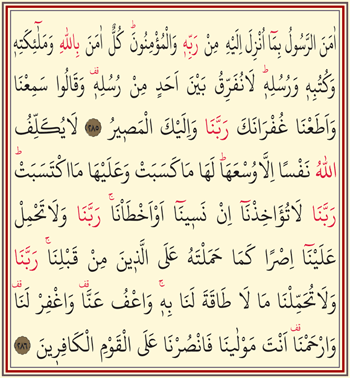 اٰمَنَ الرَّسُولُ بِمَٓا اُنْزِلَ اِلَيْهِ مِنْ رَبِّه۪ وَالْمُؤْمِنُونَۜ كُلٌّ اٰمَنَ بِاللّٰهِ وَمَلٰٓئِكَتِه۪
وَكُتُبِه۪ وَرُسُلِه۪ۜ لَانُفَرِّقُ بَيْنَ اَحَدٍ مِنْ رُسُلِه۪۠ وَقَالُوا سَمِعْنَا
وَاَطَعْنَا غُفْرَانَكَ رَبَّنَا وَاِلَيْكَ الْمَص۪يرُ ﴿٢٨٥﴾ لَايُكَلِّفُ
اللّٰهُ نَفْسًا اِلَّا وُسْعَهَاۜ لَهَا مَاكَسَبَتْ وَعَلَيْهَا مَااكْتَسَبَتْۜ
رَبَّنَا لَاتُؤَاخِذْنَٓا اِنْ نَس۪ينَٓا اَوْاَخْطَأْنَاۚ رَبَّنَا وَلَاتَحْمِلْ
عَلَيْنَٓا اِصْرًا كَمَا حَمَلْتَهُ عَلَى الَّذ۪ينَ مِنْ قَبْلِنَاۚ رَبَّنَا
وَلَاتُحَمِّلْنَا مَا لَا طَاقَةَ لَنَا بِه۪ۚ وَاعْفُ عَنَّا۠ وَاغْفِرْ لَنَا۠
وَارْحَمْنَا۠ اَنْتَ مَوْلٰينَا فَانْصُرْنَا عَلَى الْقَوْمِ الْكَافِر۪ينَ ﴿٢٨٦﴾